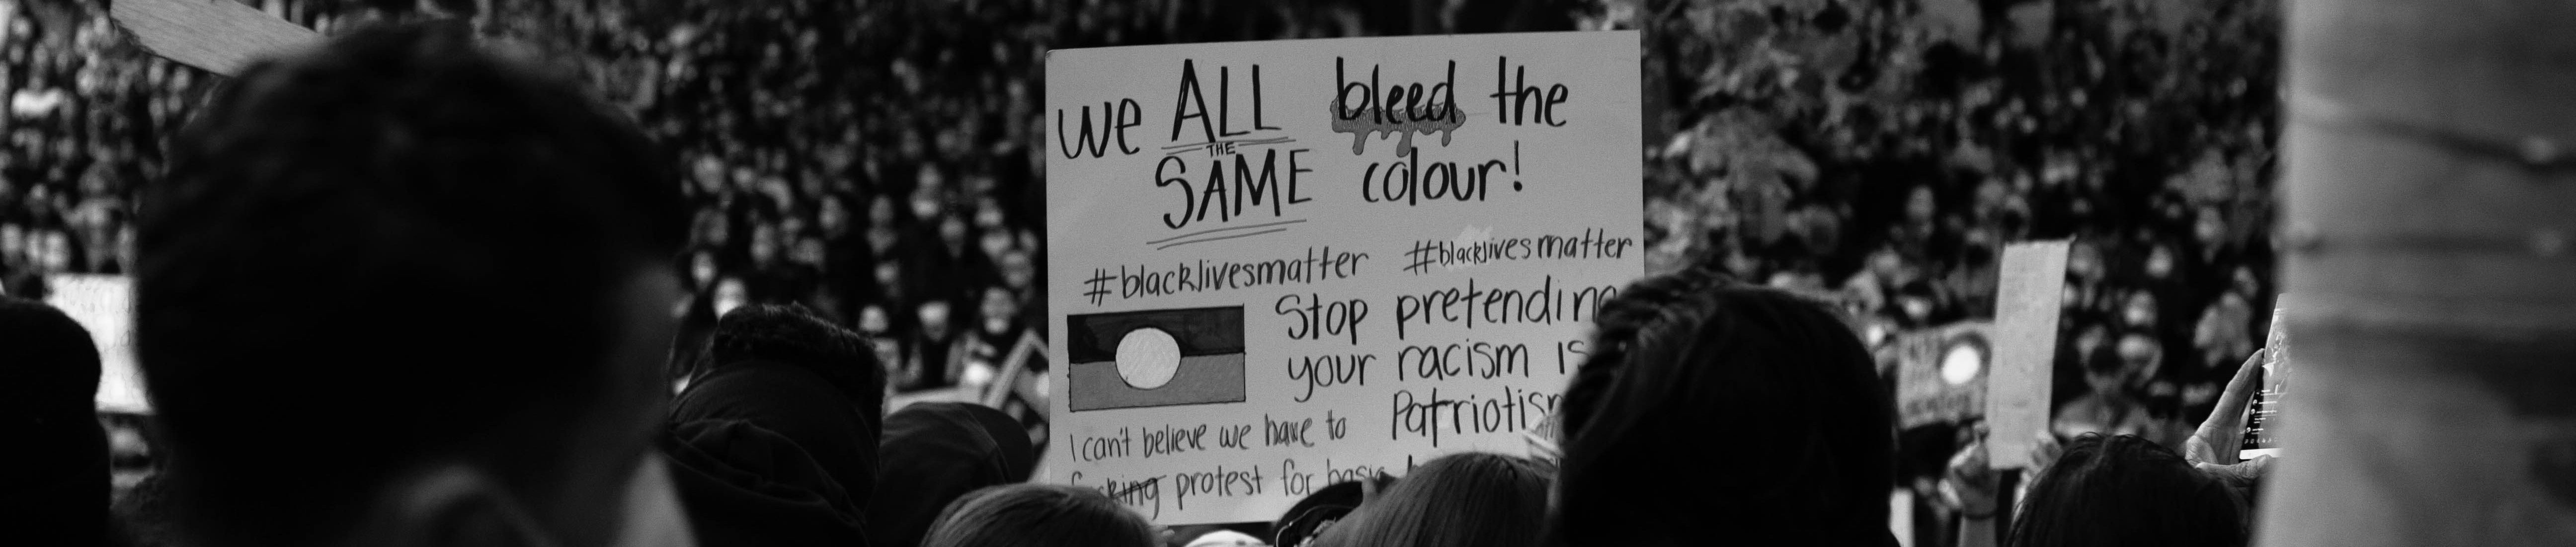 we ALL bleed the
THE
SAME colour!
#blacklivesmatter #blacklivesmatter
Stop pretending
your racism is
Patriotism
I can't believe we have to
protest for basic